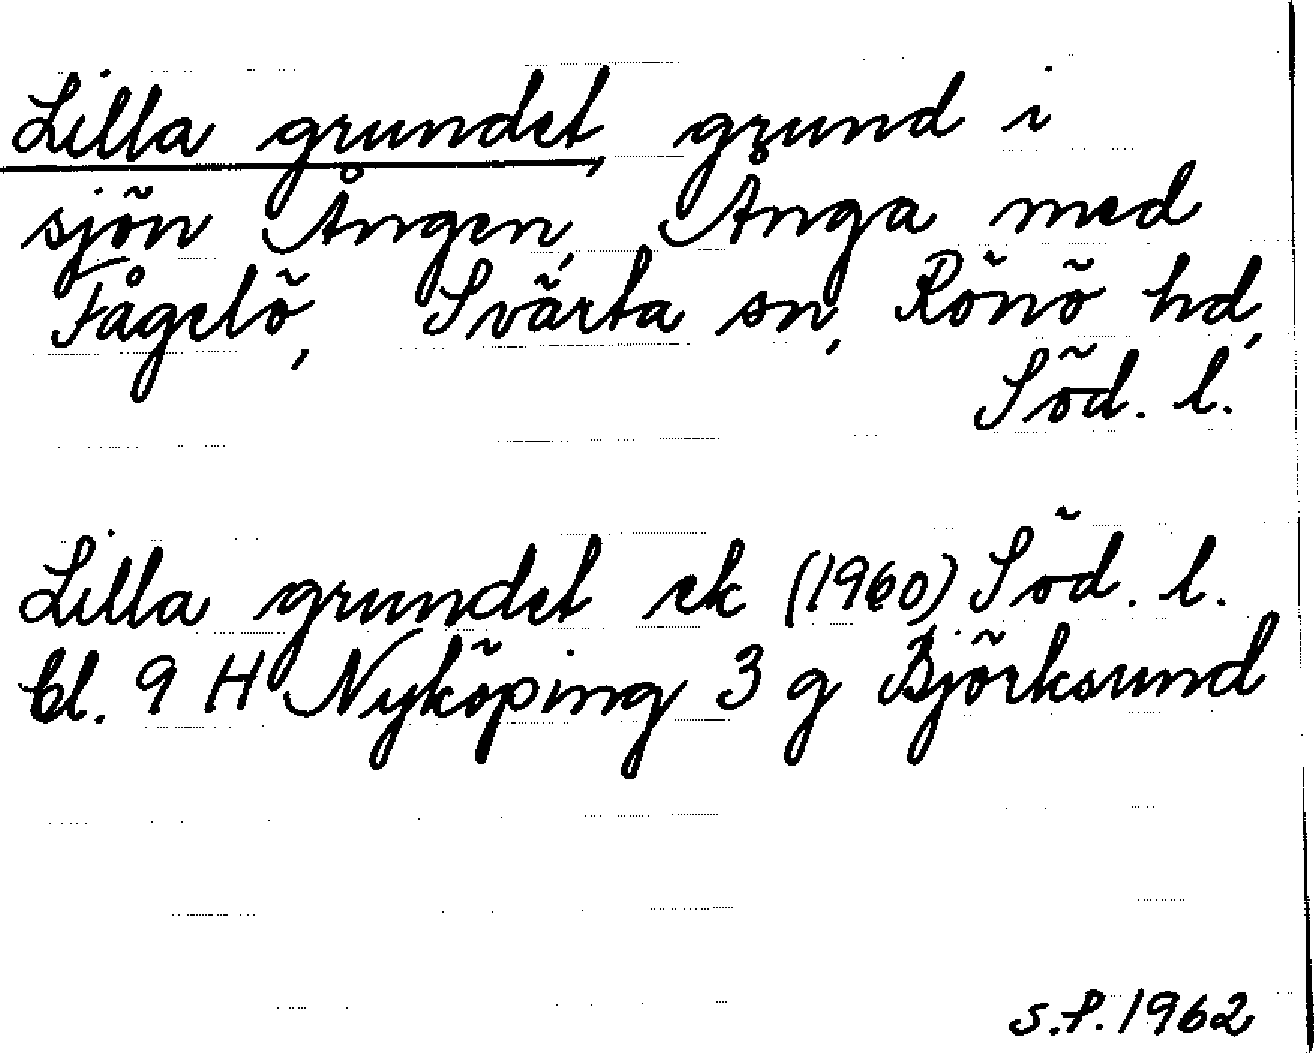 Lilla grundet, grund i
sjön Ången, Ånga med
Fågelö, Svärta sn, Rönö hd,
Söd. l.
Lilla grundet ek (1960) Söd. l.
bl. 9 H Nyköping 3 g Björksund
S.P. 1962